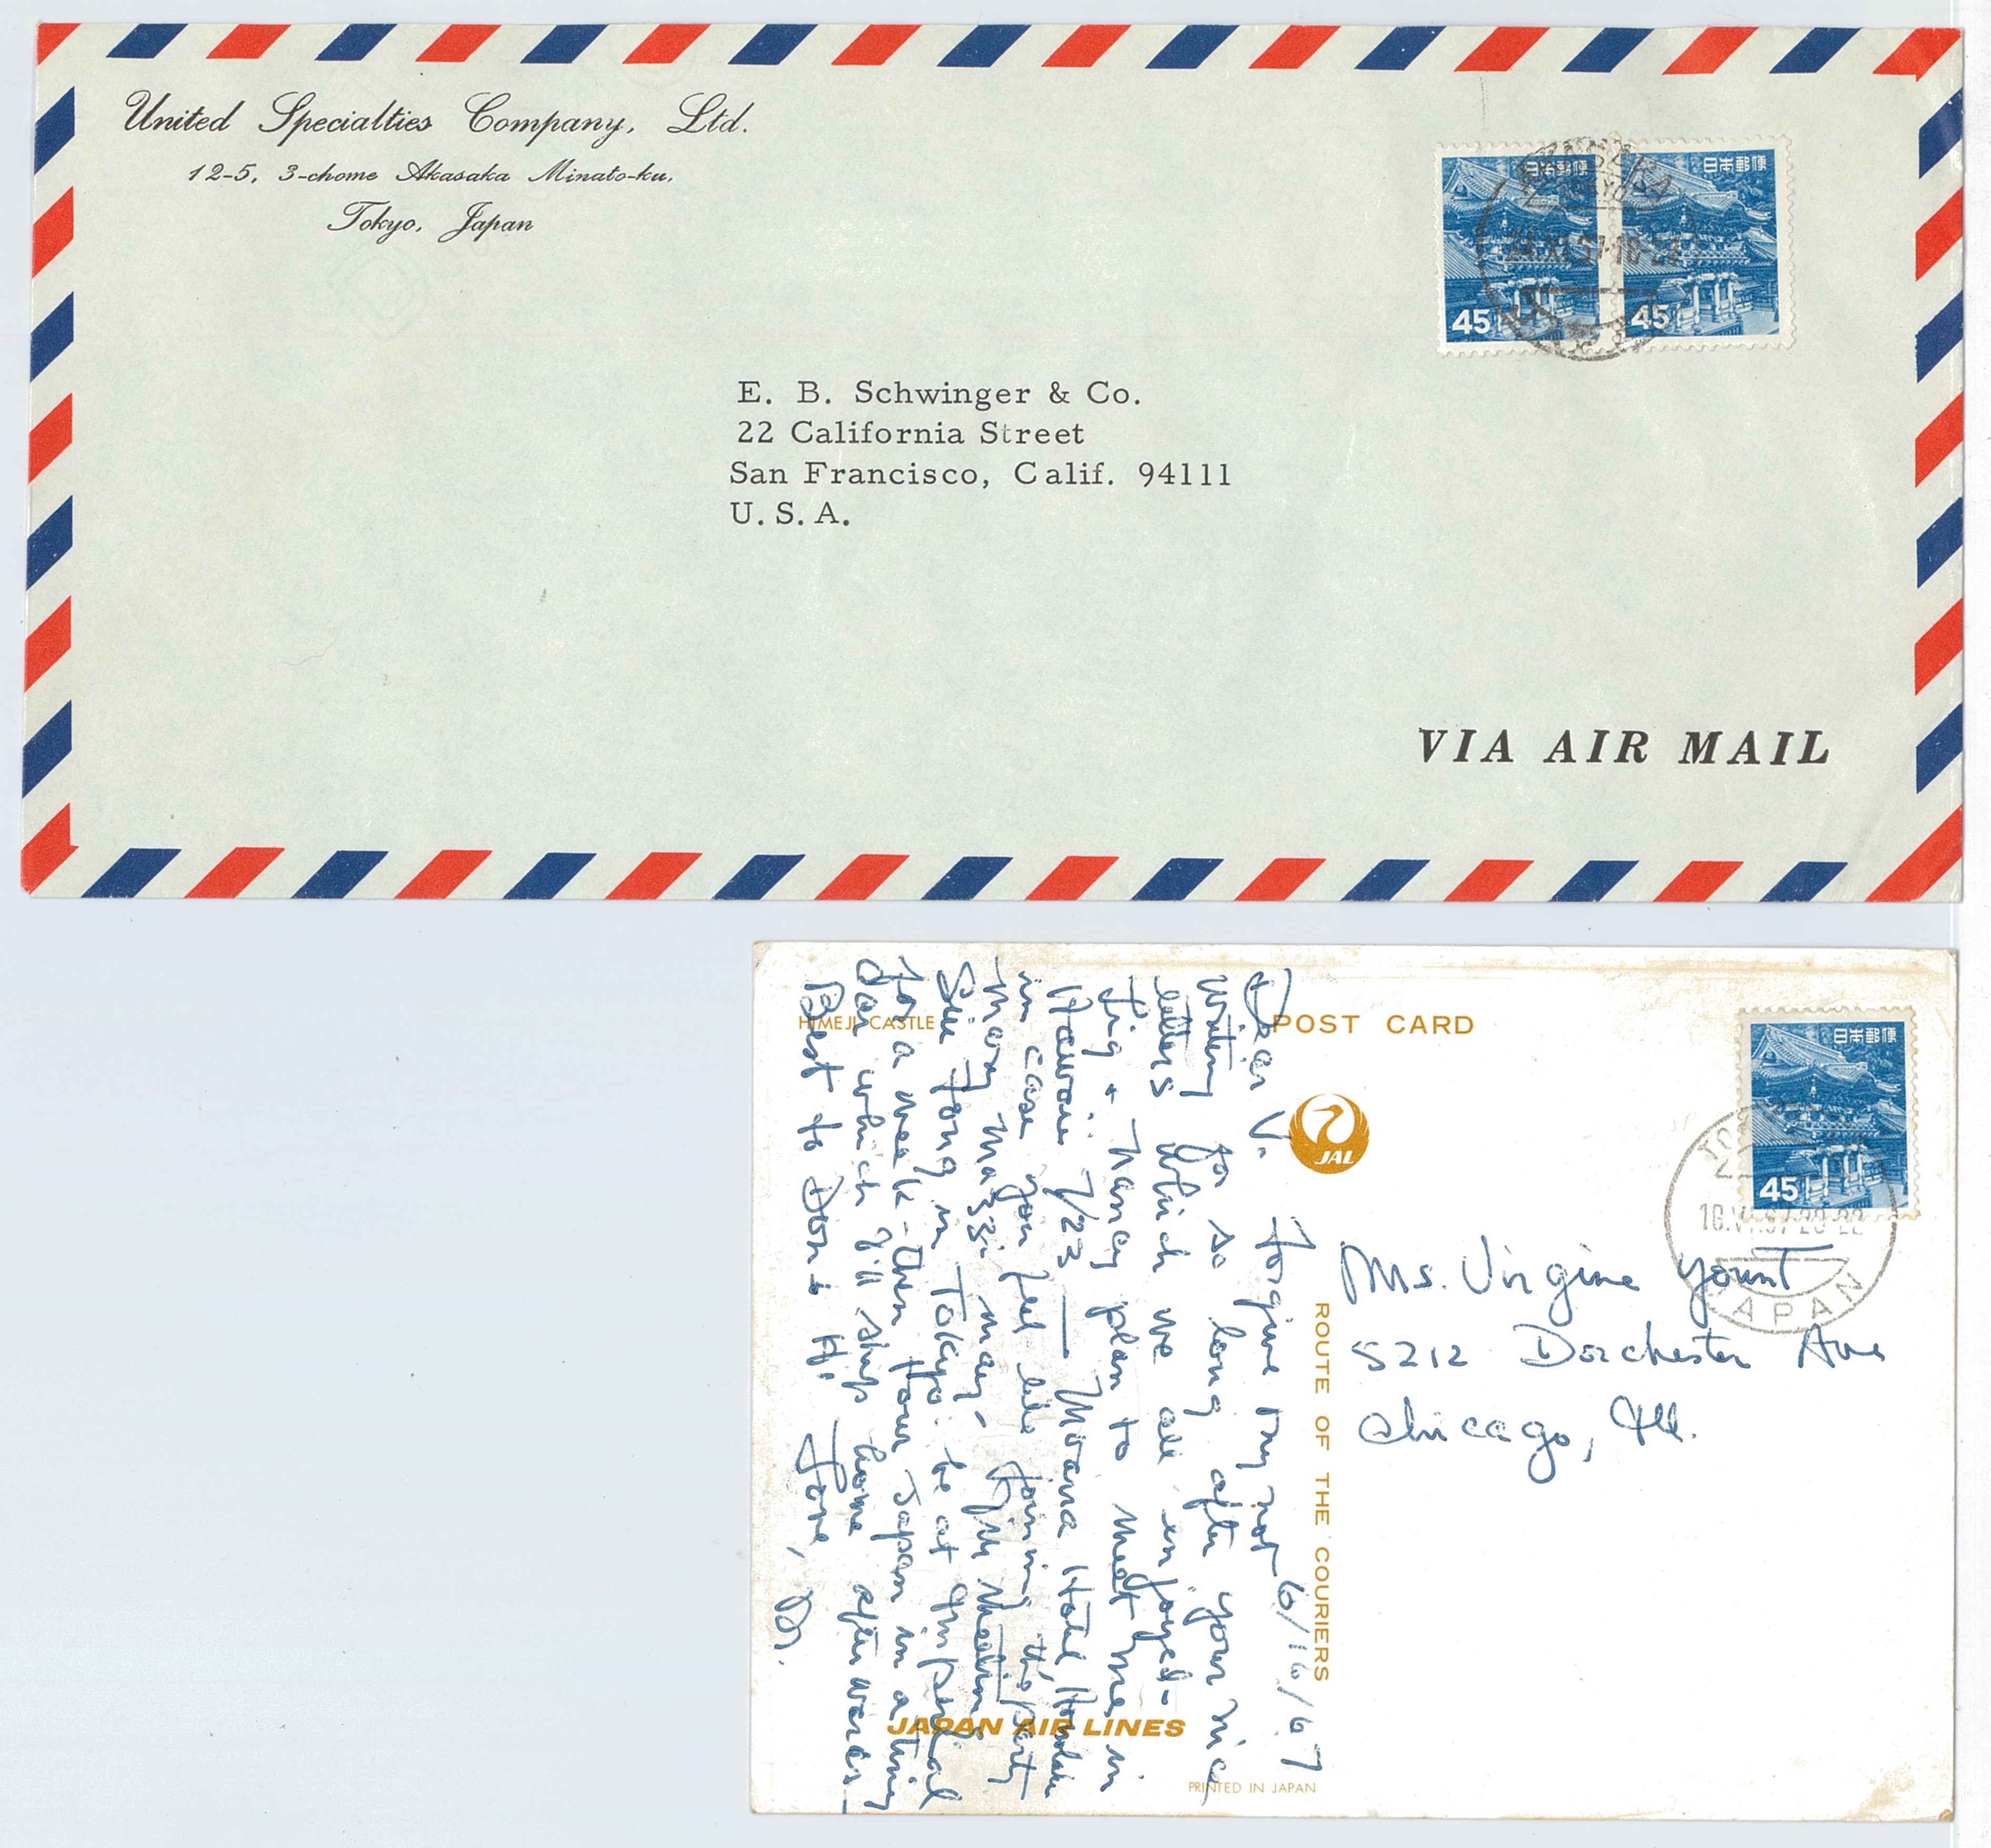 United Specialties Company, Ltd.
12-5, 3-chome Akasaka Minato-ku,
Tokyo, Japan
日本郵便
日本郵便
45
45
E. B. Schwinger & Co.
22 California Street
San Francisco, Calif. 94111
U. S. A.
VIA AIR MAIL
HIMEJI CASTLE
POST CARD
JAL
日本郵便
45
JAPAN
6/16/67
Dear V. Forgive my not
writing for so long after your nice
letters which we all enjoyed-
& Nancy plan to meet me in
Hawaii 7/23 — Moana Hotel, Honolulu
in case you feel like joining the party
Mary may. meeting
Sue Fong in Tokyo. be at Imperial
for a week - then tour Japan in a tiny
car which I'll ship home afterwards-
Best to Don & H. Love,
ROUTE OF THE COURIERS
Ms. Virgine Yount
5212 Dorchester Ave
Chicago, Ill.
JAPAN AIR LINES
PRINTED IN JAPAN